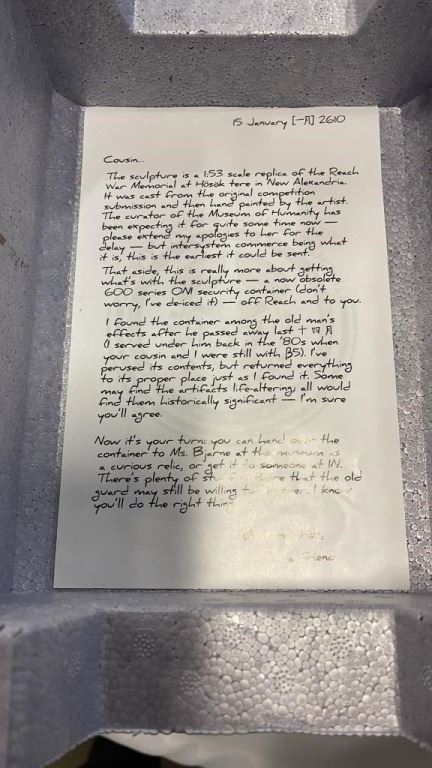 15 January [一月] 2610
Cousin...
The sculpture is a 1:53 scale replica of the Reach
War Memorial at Hősök tere in New Alexandria.
It was cast from the original competition
submission and then hand painted by the artist.
The curator of the Museum of Humanity has
been expecting it for quite some time now —
please extend my apologies to her for the
delay — but intersystem commerce being what
it is, this is the earliest it could be sent.
That aside, this is really more about getting
what's with the sculpture — a now obsolete
600 series ONI security container (don't
worry, I've de-iced it) — off Reach and to you.
I found the container among the old man's
effects after he passed away last 十四月
(I served under him back in the '80s when
your cousin and I were still with β5). I've
perused its contents, but returned everything
to its proper place just as I found it. Some
may find the artifacts life-altering; all would
find them historically significant — I'm sure
you'll agree.
Now it's your turn: you can hand over the
container to Ms. Bjarne at the museum as
a curious relic, or get it to someone at IN.
There's plenty of there that the old
guard may still be willing to I know
you'll do the right thing
a friend